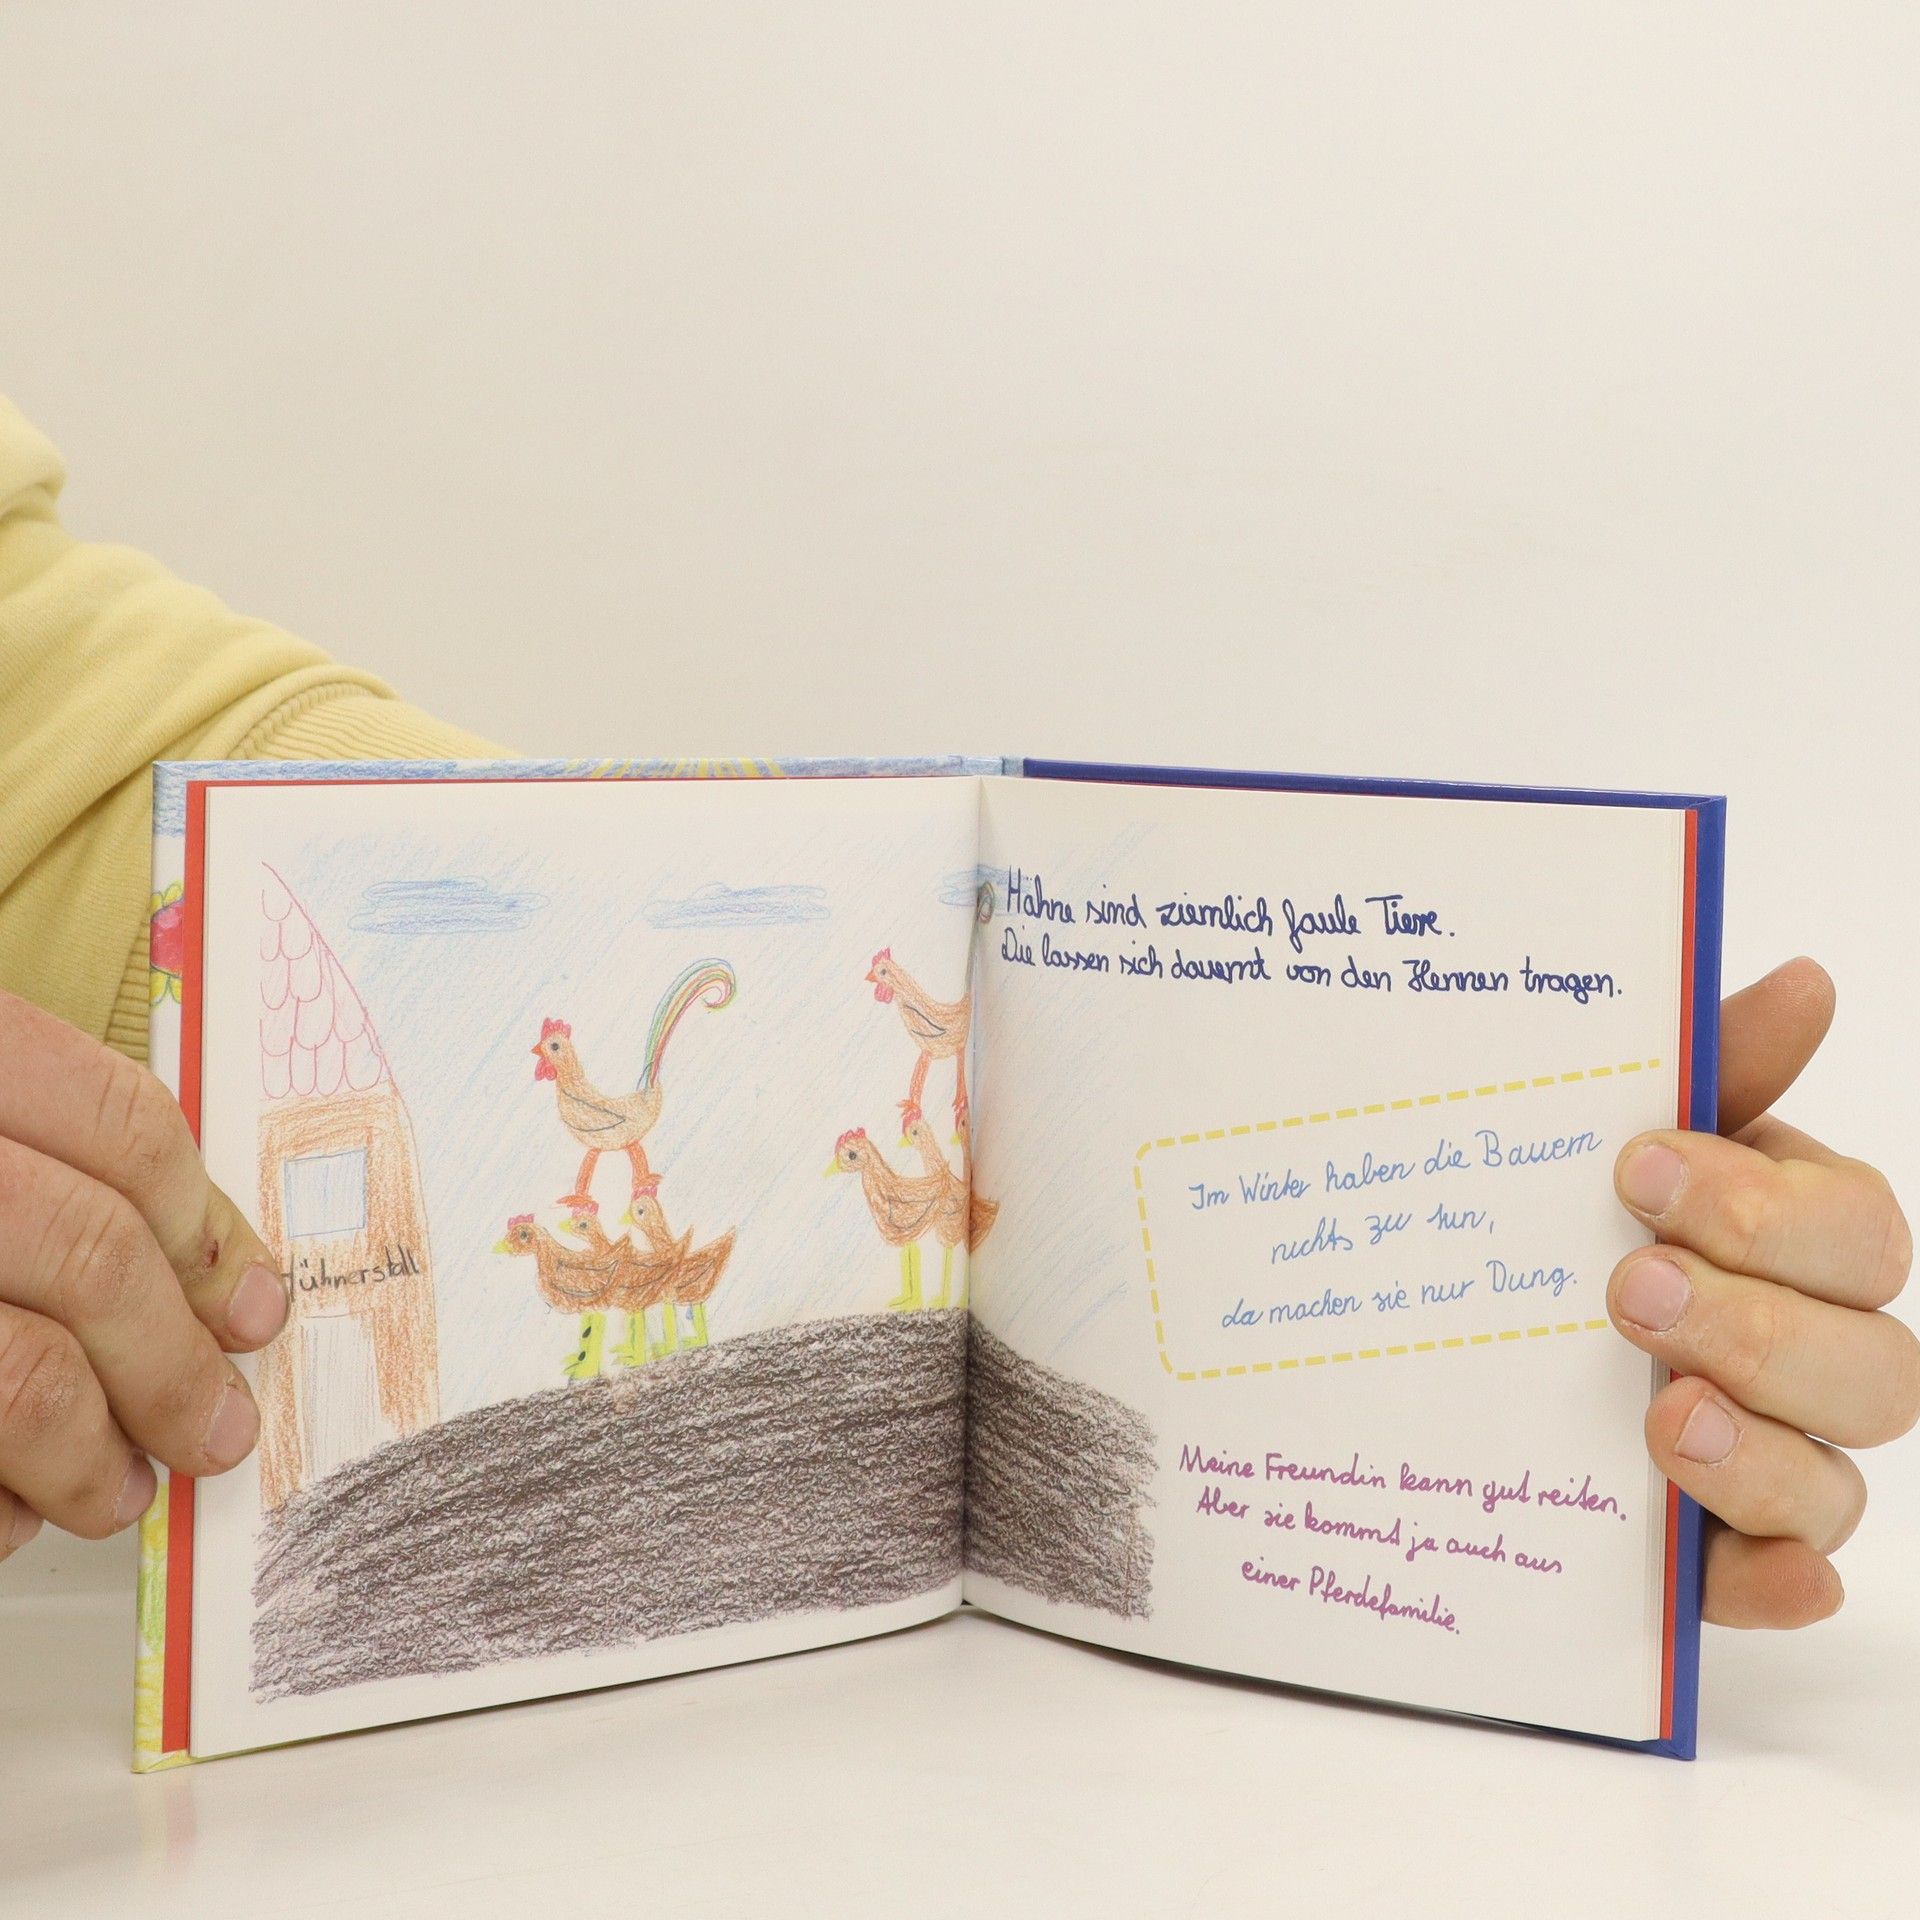 Hühnerstall
Hähne sind ziemlich faule Tiere.
Die lassen sich dauernt von den Hennen tragen.
Im Winter haben die Bauern
nichts zu tun,
da machen sie nur Dung.
Meine Freundin kann gut reiten.
Aber sie kommt ja auch aus
einer Pferdefamilie.